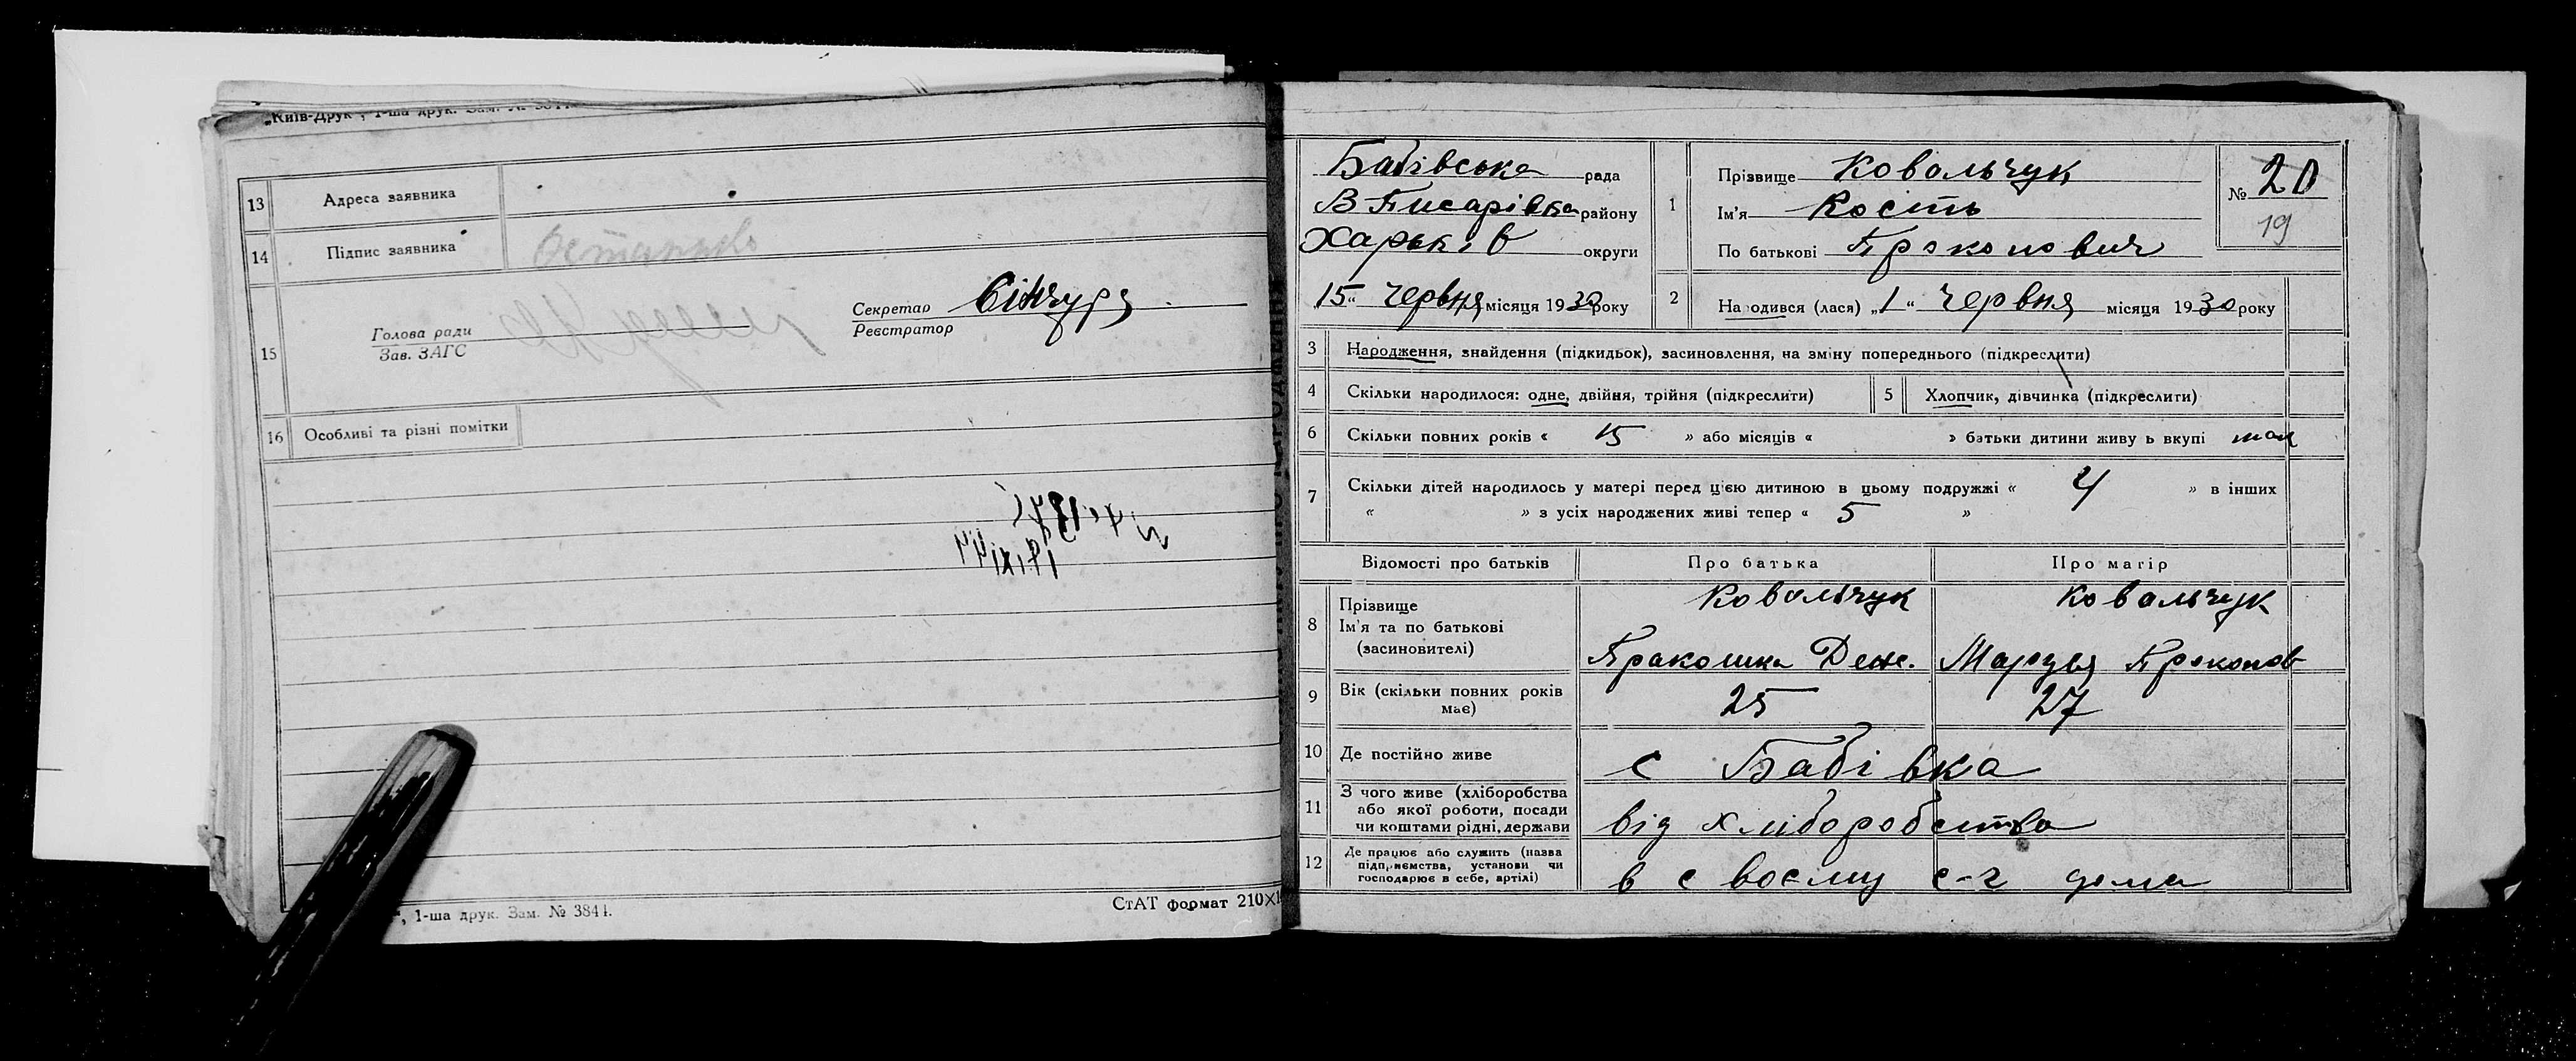 „Київ-Друк", 1-ша друк. Зам.
13 Адреса заявника
14 Підпис заявника
15 Голова ради
Зав. ЗАГС
Секретар Сінчура
Реєстратор
16 Особливі та різні помітки
", 1-ша друк. Зам. № 3844.
СтАТ формат 210×1
Бабівська рада
В Писарівка району
Харьків округи
„15" червня місяця 1930 року
1 Прізвище Ковальчук
Ім'я Кость
По батькові Прокопович
№ 20
19
2 Народився (лася) „1" червня місяця 1930 року
3 Народження, знайдення (підкидьок), засиновлення, на зміну попереднього (підкреслити)
4 Скільки народилося: одне, двійня, трійня (підкреслити) 5 Хлопчик, дівчинка (підкреслити)
6 Скільки повних років « 15 » або місяців « » батьки дитини живу ь вкупі
7 Скільки дітей народилось у матері перед цією дитиною в цьому подружжі « 4 » в інших
« » з усіх народжених живі тепер « 5 »
Відомості про батьків Про батька Про матір
8 Прізвище Ковальчук Ковальчук
Ім'я та по батькові
(засиновителі) Мария Проконов
9 Вік (скільки повних років
має) 25 27
10 Де постійно живе с Бабівка
11 З чого живе (хліборобства
або якої роботи, посади
чи коштами рідні, держави від хліборобства
12 Де працює або служить (назва
підприємства, установи чи
господарює в себе, артілі) в своєму с-г дома